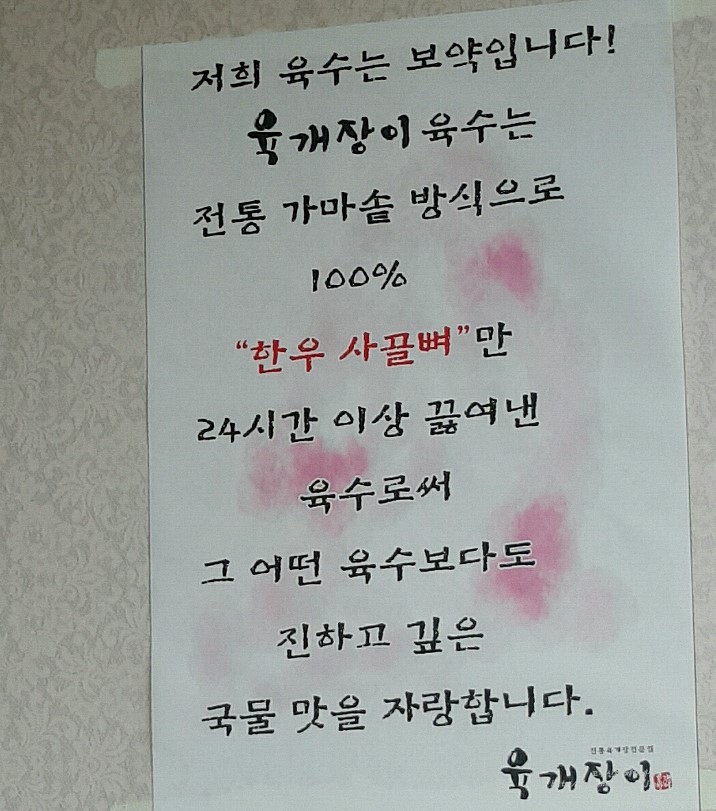 저희 육수는 보약입니다!
육개장이 육수는
전통 가마솥 방식으로
100%
“한우 사골뼈”만
24시간 이상 끓여낸
육수로써
그 어떤 육수보다도
진하고 깊은
국물 맛을 자랑합니다.
전통육개장전문점
육개장이